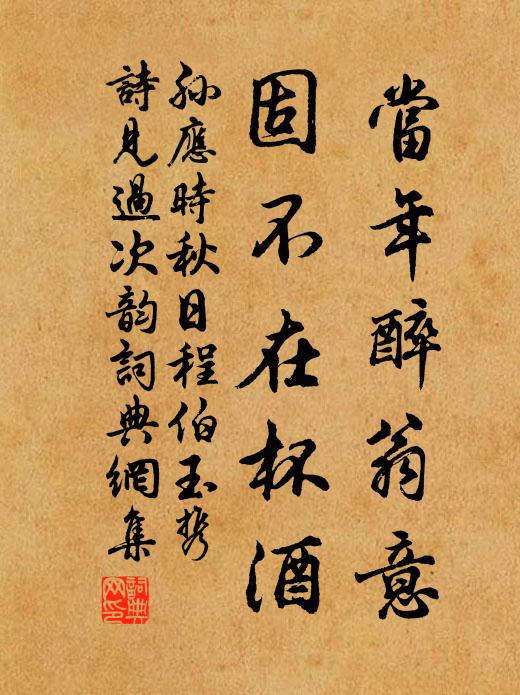 當年醉翁意
固不在杯酒
孫應時秋日程伯玉携
詩見過次韵詞典網集
詞典网印